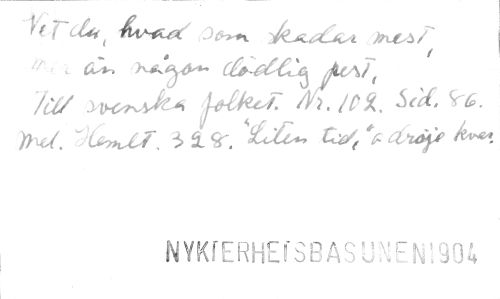 Vet du, hvad som skadar mest,
mer än någon dödlig pest,
Till svenska folket. Nr. 102. Sid. 86.
Mel. Hemlt. 328. "Liten tid," a dröje kvar.
NYKTERHETSBASUNEN 1904